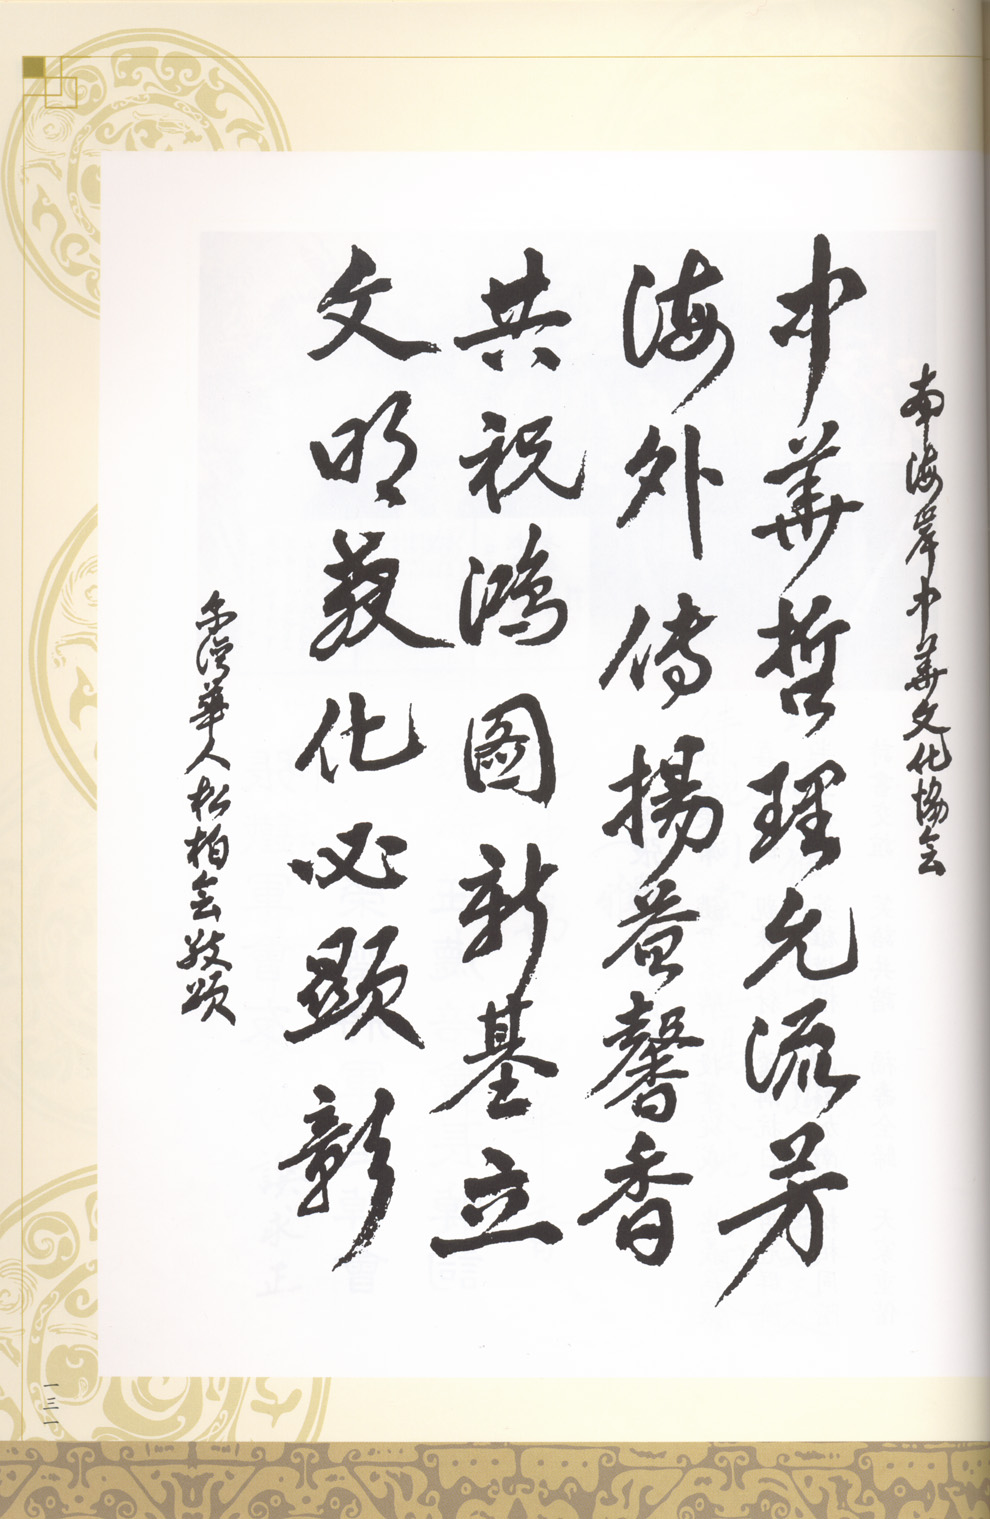 南海岸中華文化協会
中華哲理允流芳
海外傳揚益馨香
共祝鴻圖新基立
文明教化必顯彰
尔湾華人松柏会敬頌
一三一